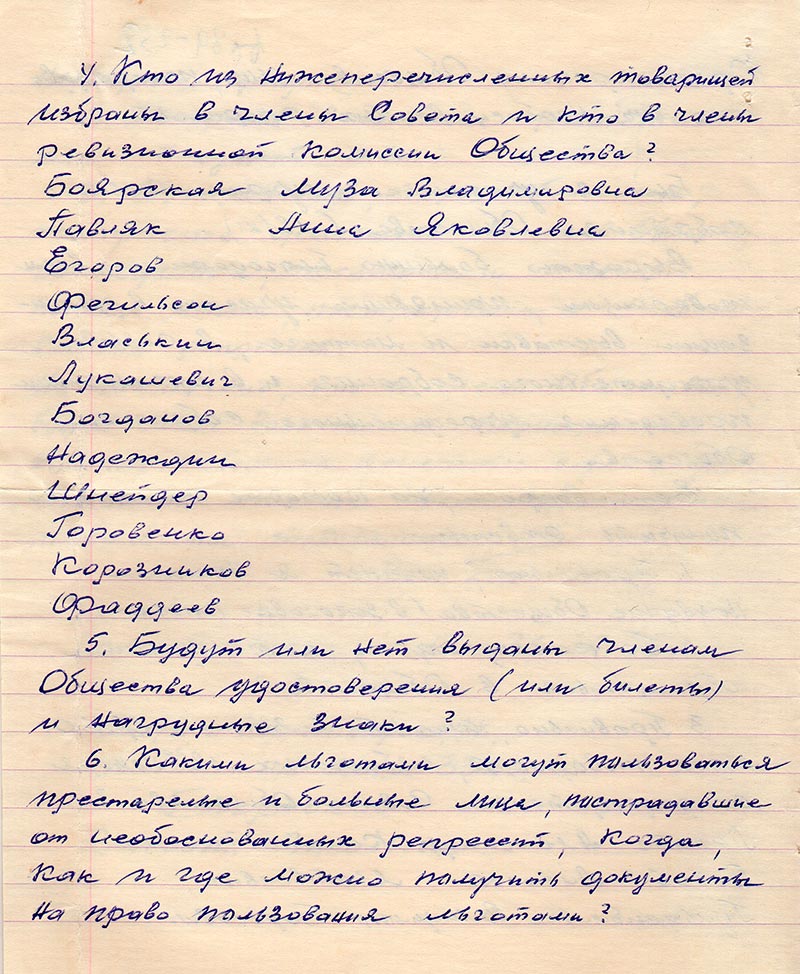 4. Кто из нижеперечисленных товарищей
избраны в члены Совета и кто в члены
ревизионной комиссии Общества?
Боярская Муза Владимировна
Павляк Анна Яковлевна
Егоров
Фечильсон
Васькин
Лукашевич
Богданов
Надеждин
Шнейдер
Горовенко
Корозников
Фаддеев
5. Будут или нет выданы членам
Общества удостоверения (или билеты)
и нагрудные знаки?
6. Какими льготами могут пользоваться
престарелые и больные лица, пострадавшие
от необоснованных репрессий, когда,
как и где можно получить документы
на право пользования льготами?